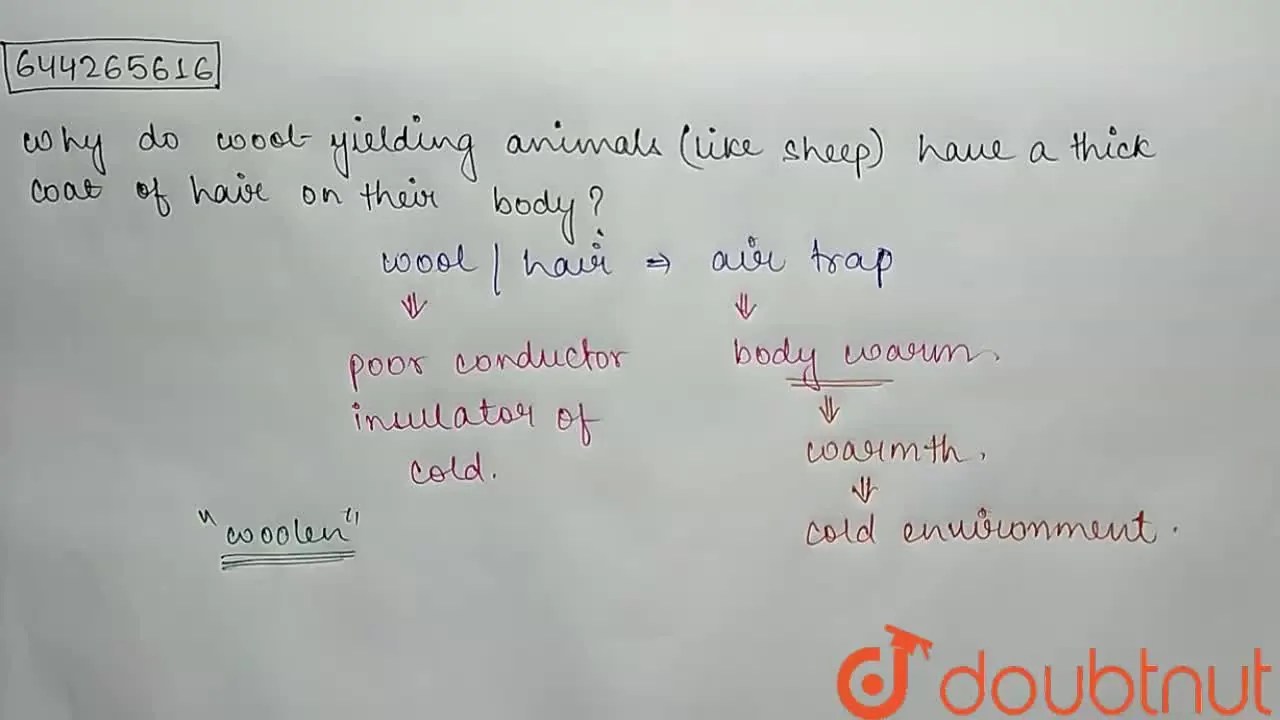 644265616
Why do wool-yielding animals (like sheep) have a thick
coat of hair on their body?
wool | hair ⇒ air trap
⇓ ⇓
poor conductor body warm.
insulator of ⇓
cold. warmth.
⇓
"woolen" cold environment.
doubtnut